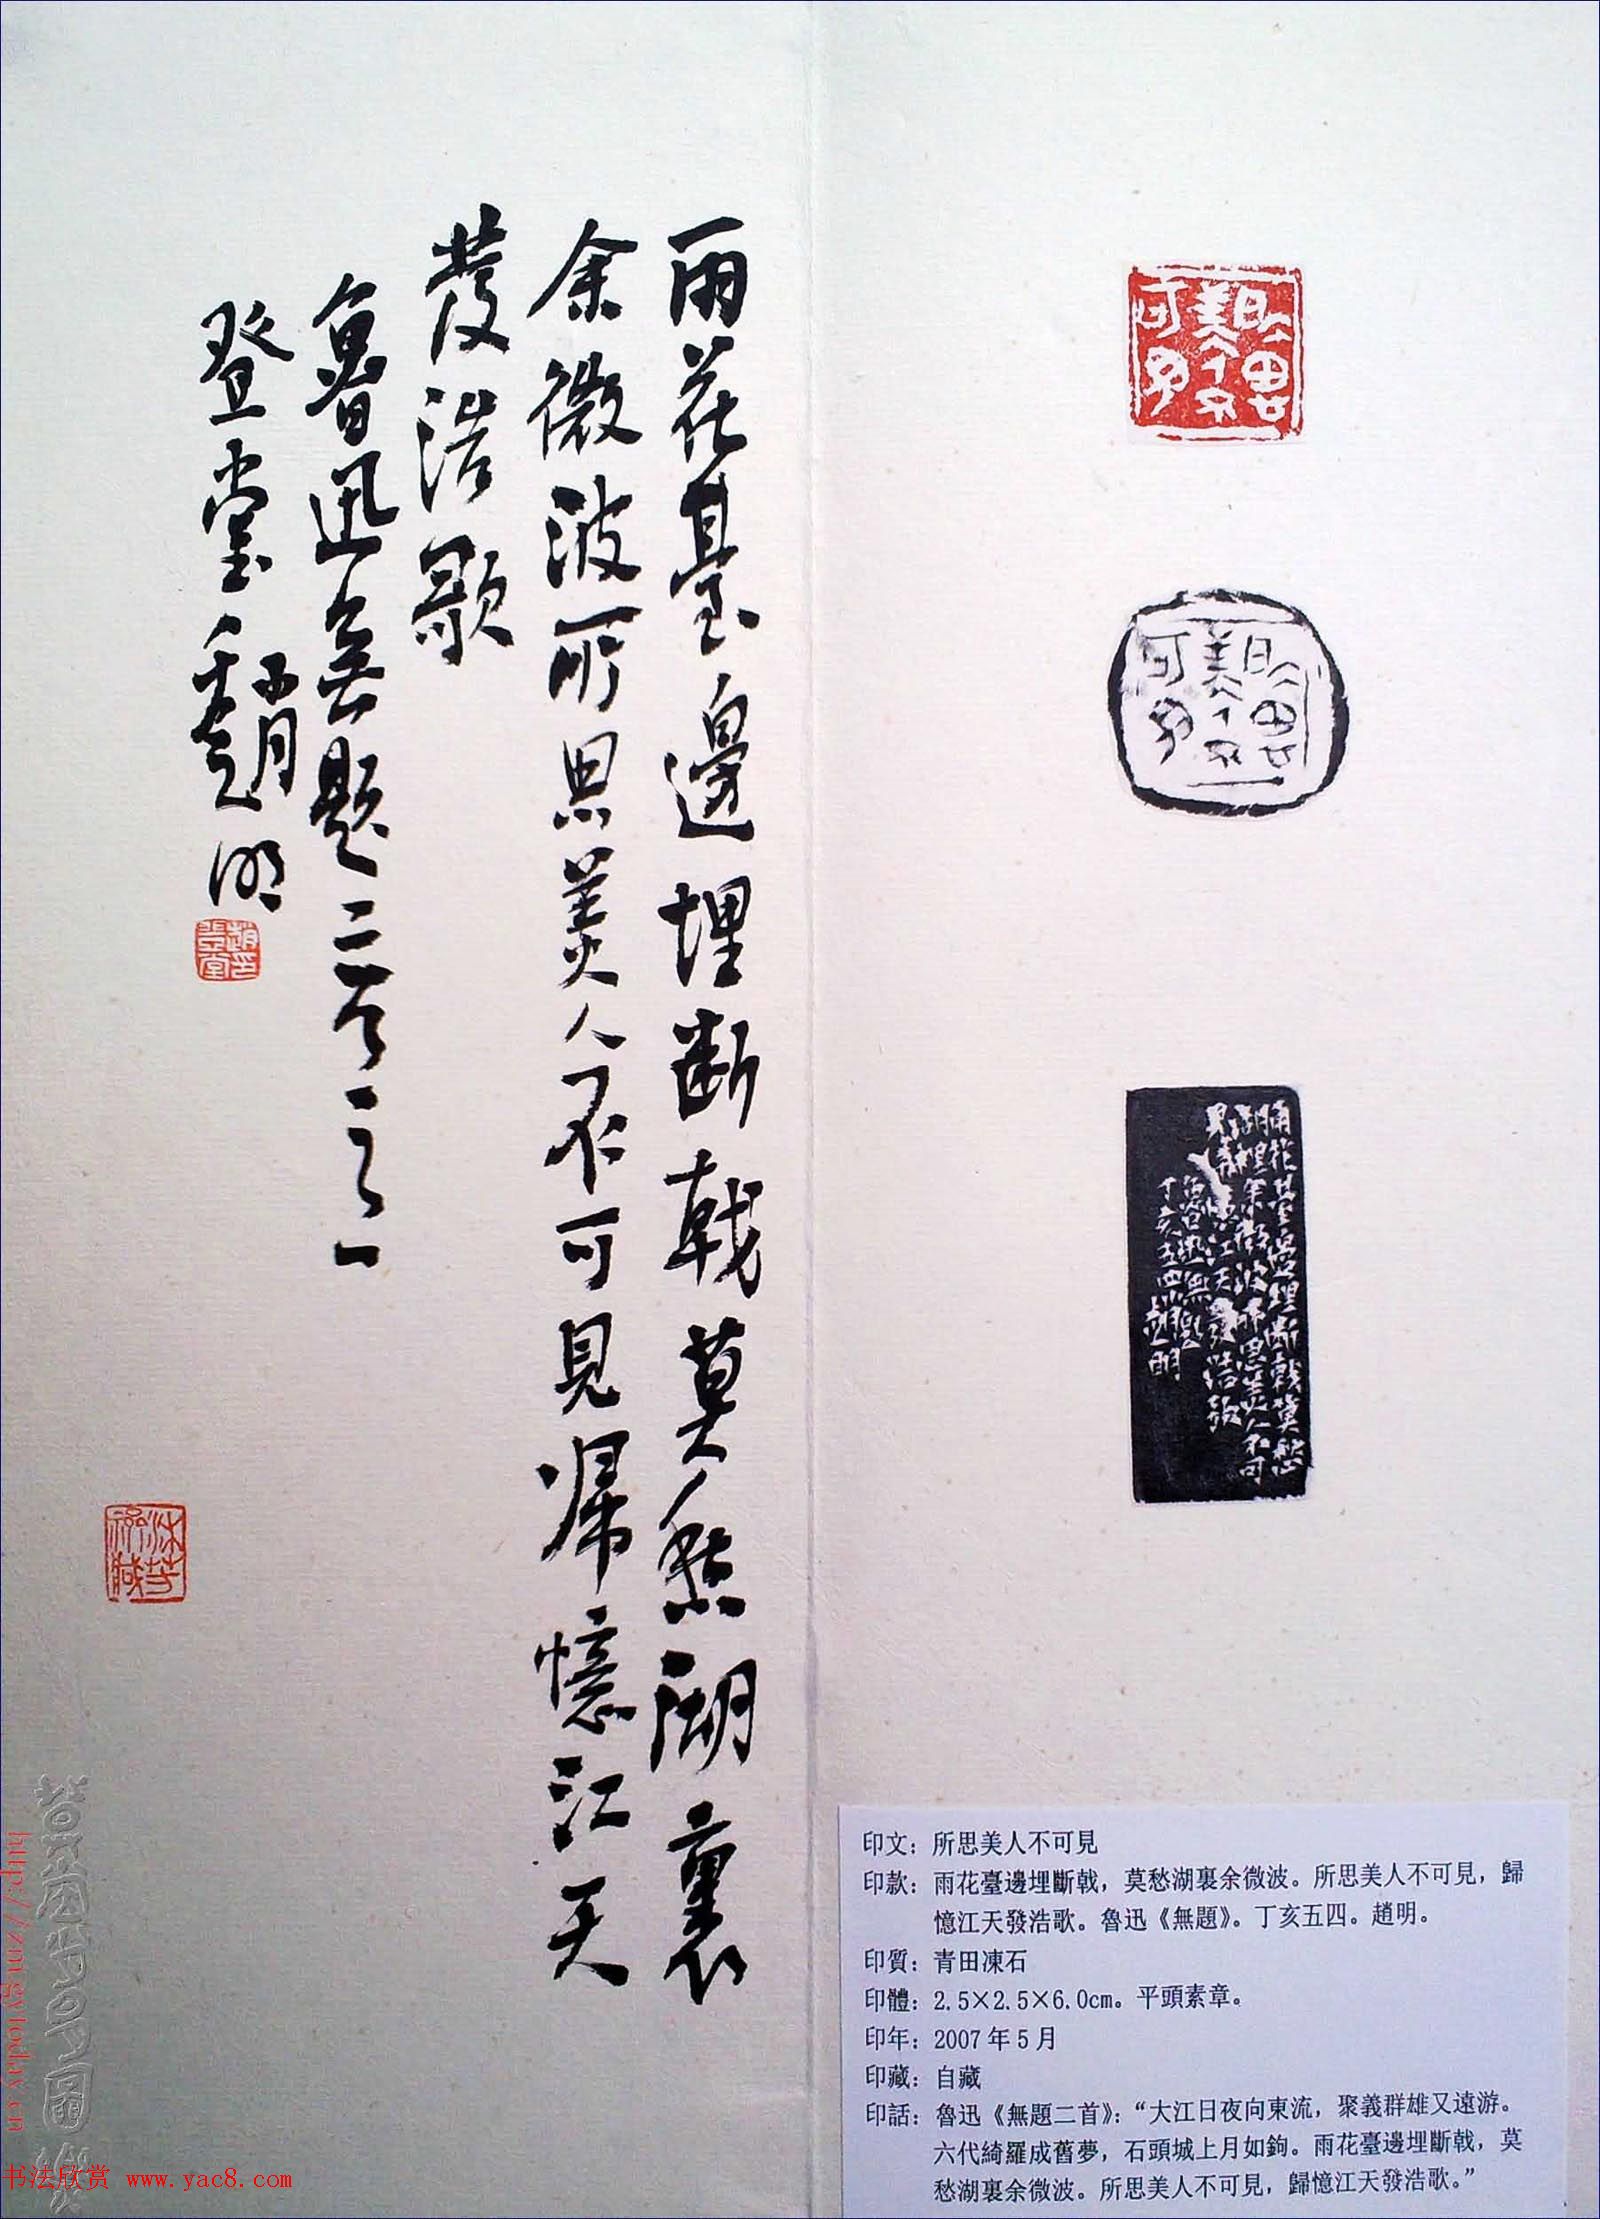 雨花臺邊埋斷戟莫愁湖裏
余微波所思美人不可見歸憶江天
發浩歌
魯迅無題二首之一
登堂
趙明
趙明
登堂
所思美人不可見
雨花臺邊埋斷戟莫愁
湖裡余微波所思美人不可
見歸憶江天發浩歌
魯迅無題
丁亥五四趙明
印文：所思美人不可見
印款：雨花臺邊埋斷戟，莫愁湖裏余微波。所思美人不可見，歸
憶江天發浩歌。魯迅《無題》。丁亥五四。趙明。
印質：青田凍石
印體：2.5×2.5×6.0cm。平頭素章。
印年：2007年5月
印藏：自藏
印話：魯迅《無題二首》：“大江日夜向東流，聚義群雄又遠游。
六代綺羅成舊夢，石頭城上月如鉤。雨花臺邊埋斷戟，莫
愁湖裏余微波。所思美人不可見，歸憶江天發浩歌。”
书法欣赏 www.yac8.com